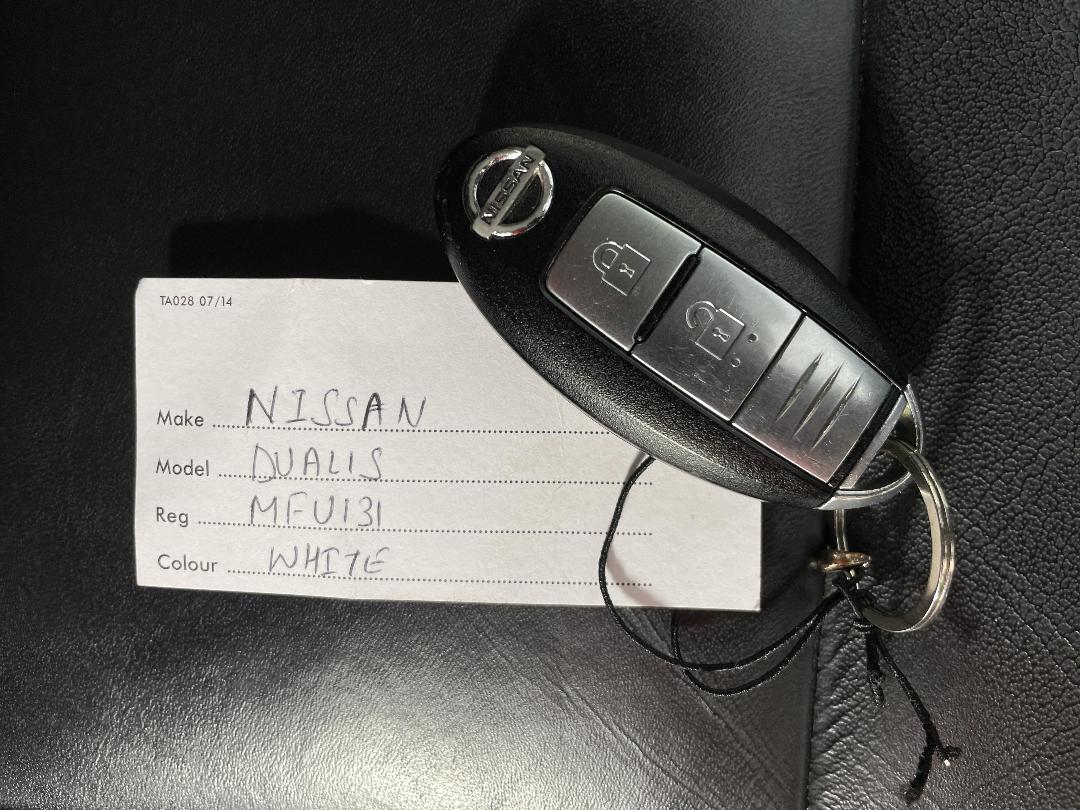 NISSAN
TA028 07/14
Make NISSAN
Model DUALIS
Reg MFU131
Colour WHITE